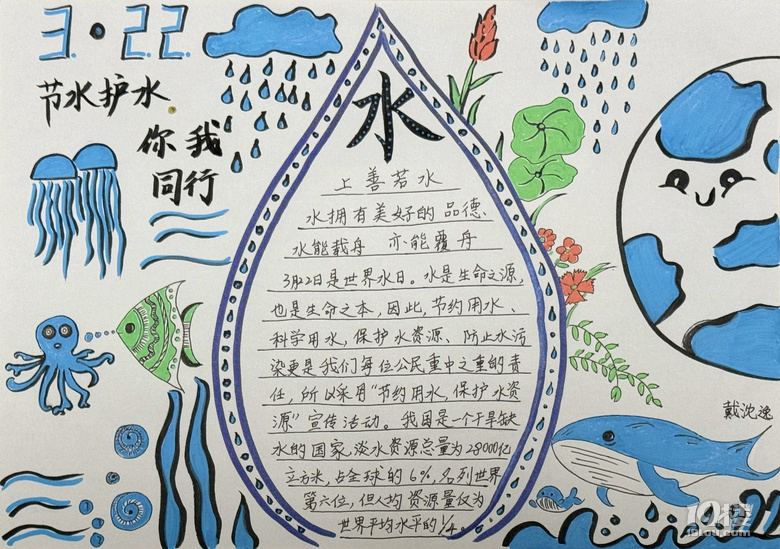 3.22
节水护水
你我
同行
水
上善若水
水拥有美好的品德、
水能载舟 亦能覆舟
3月22日是世界水日。水是生命之源,
也是生命之本,因此,节约用水、
科学用水,保护水资源、防止水污
染更是我们每位公民重中之重的责
任,所以采用“节约用水,保护水资
源”宣传活动。我国是一个干旱缺
水的国家,淡水资源总量为28000亿
立方米,占全球的6%,名列世界
第六位,但人均资源量仅为
世界平均水平的1/4。
戴沈逸